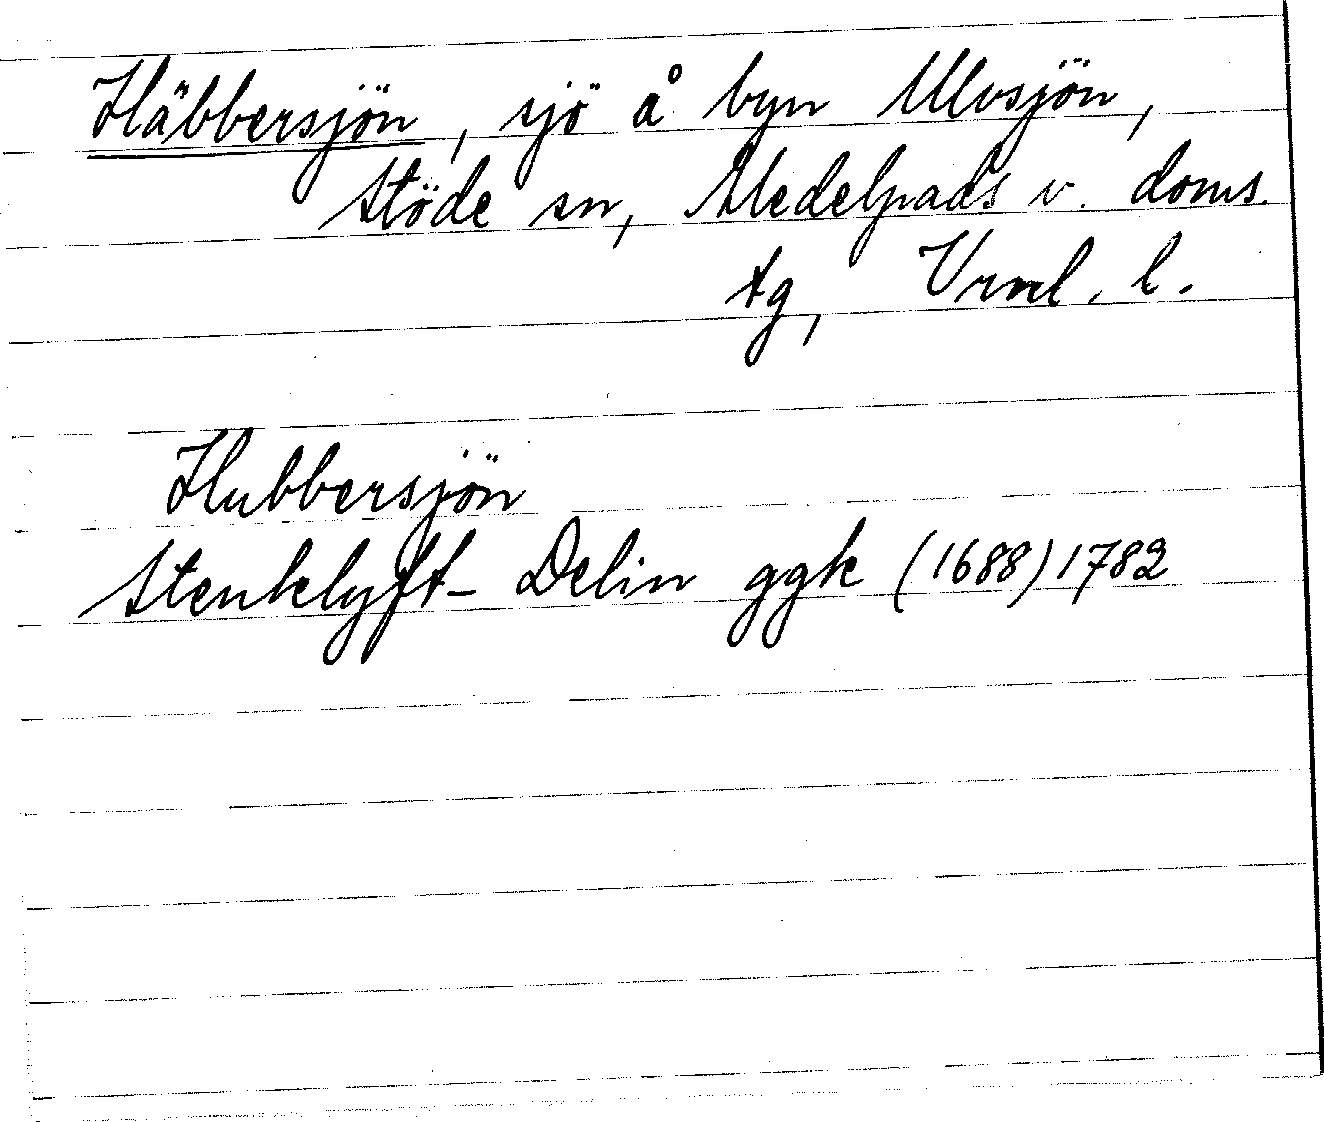 Häbbersjön, sjö å byn Ulvsjön,
Stöde sn, Medelpads v. doms.
tg, Vrnl. l.
Hubbersjön
Stenklyft-Delin ggk (1688) 1782